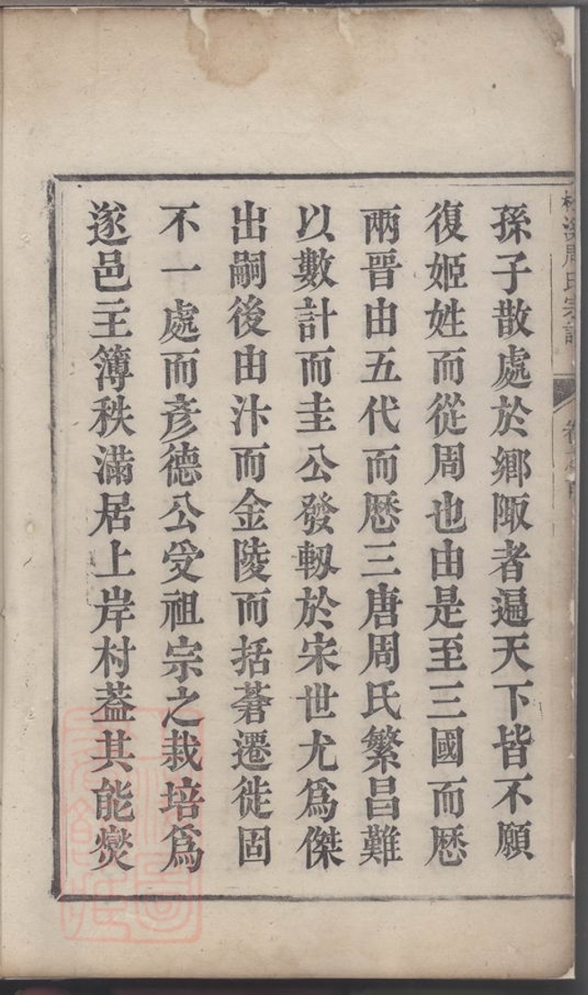 周氏宗譜
孫子散處於鄉陬者遍天下皆不願
復姬姓而從周也由是至三國而厯
兩晉由五代而厯三唐周氏繁昌難
以數計而圭公發軔於宋世尤爲傑
出嗣後由汴而金陵而括蒼遷徙固
不一處而彥德公受祖宗之栽培爲
遂邑主簿秩滿居上岸村葢其能爕